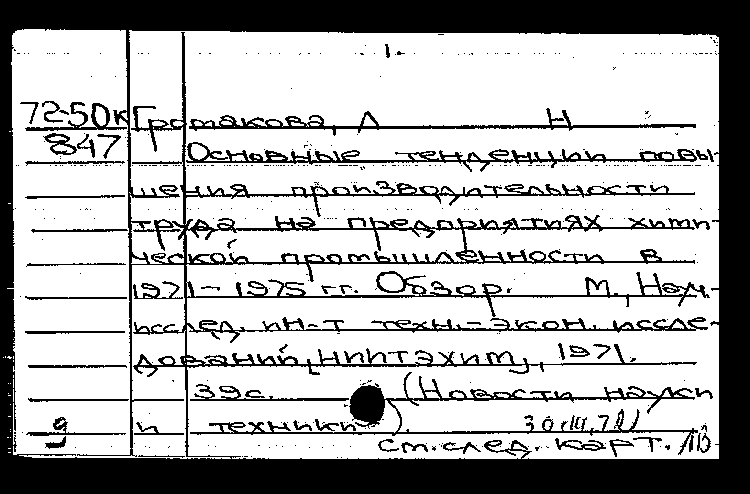 1.
72-50к Громакова, Л Н
847 Основные тенденции повы-
шения производительности
труда на предприятиях хими-
ческой промышленности в
1971-1975 гг. Обзор. М., Науч.-
исслед. ин-т техн.-экон. иссле-
дований, [НИИТЭХИМ], 1971.
39с. (Новости науки
и техники).
см.след. карт.